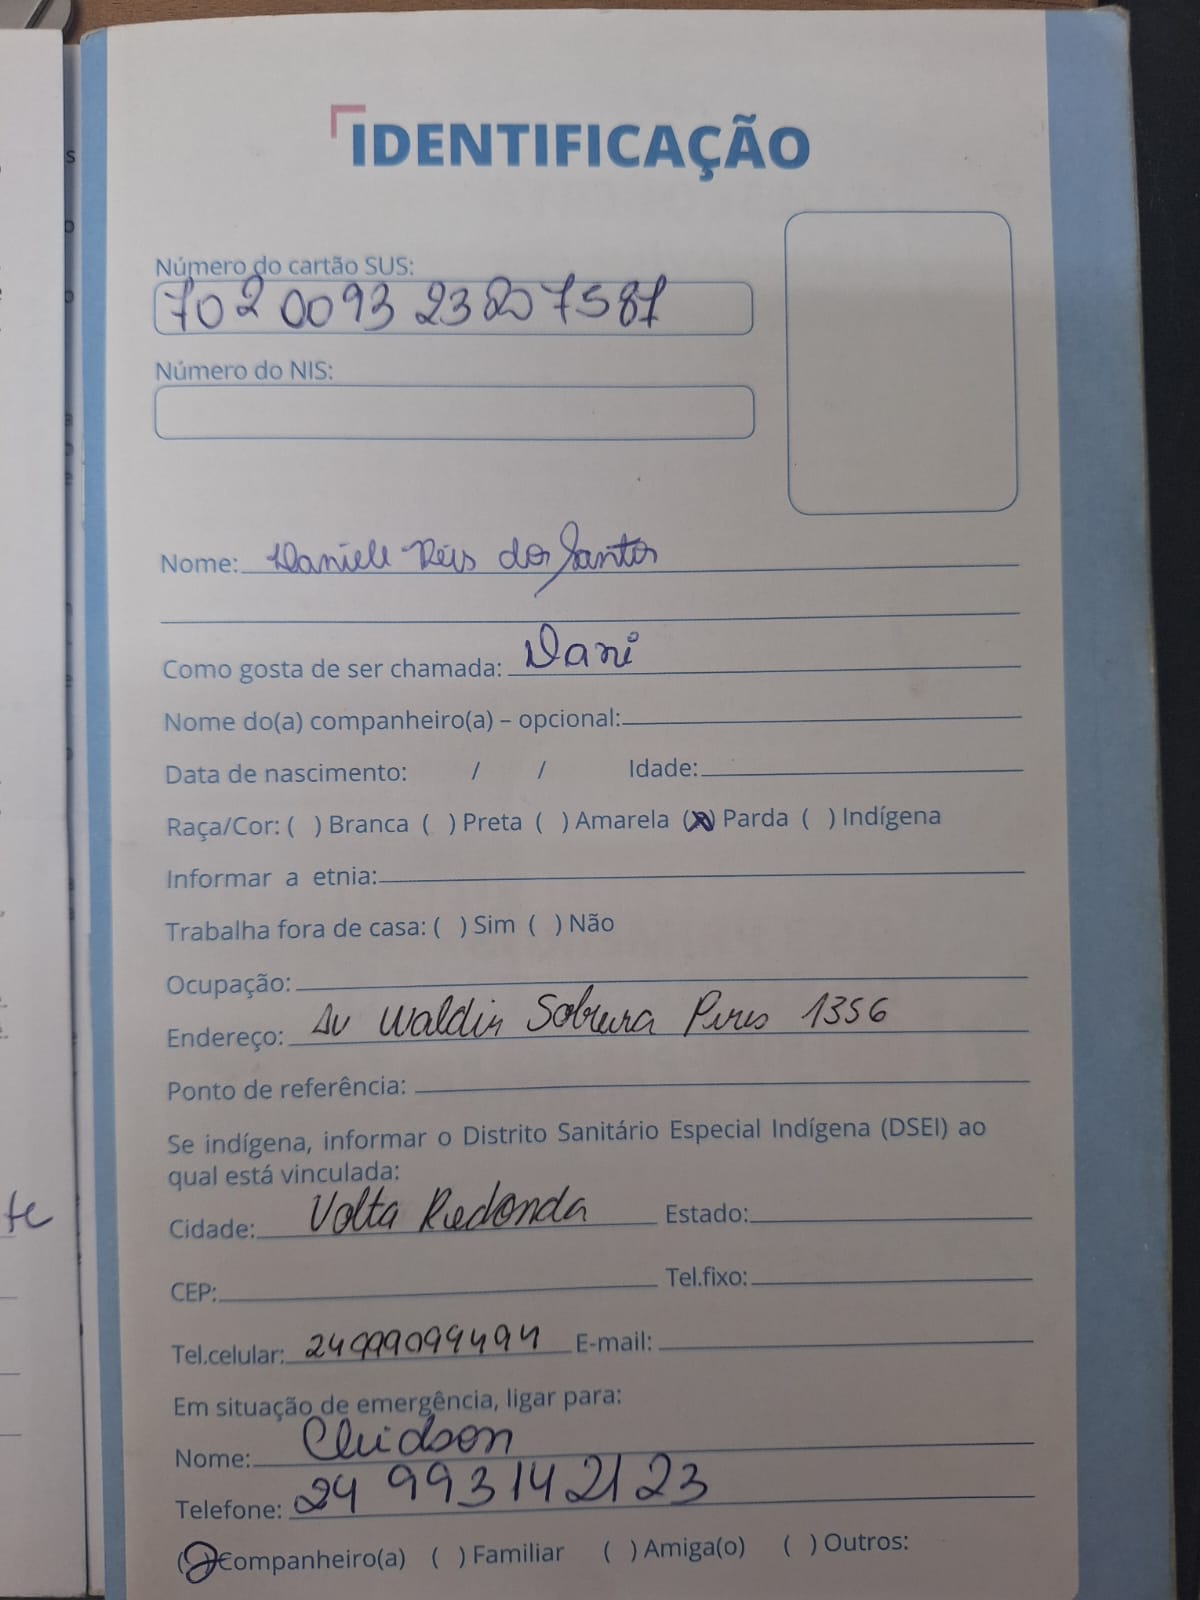 IDENTIFICAÇÃO
Número do cartão SUS:
702 0093 2380 7587
Número do NIS:
Nome: Daniele Reis dos Santos
Como gosta de ser chamada: Dani
Nome do(a) companheiro(a) – opcional:
Data de nascimento: / / Idade:
Raça/Cor: ( ) Branca ( ) Preta ( ) Amarela (X) Parda ( ) Indígena
Informar a etnia:
Trabalha fora de casa: ( ) Sim ( ) Não
Ocupação:
Endereço: Av Waldir Sobreira Pires 1356
Ponto de referência:
Se indígena, informar o Distrito Sanitário Especial Indígena (DSEI) ao
qual está vinculada:
Cidade: Volta Redonda Estado:
CEP: Tel.fixo:
Tel.celular: 24999099494 E-mail:
Em situação de emergência, ligar para:
Nome: Cleidson
Telefone: 24 993142123
( ) Companheiro(a) ( ) Familiar ( ) Amiga(o) ( ) Outros: